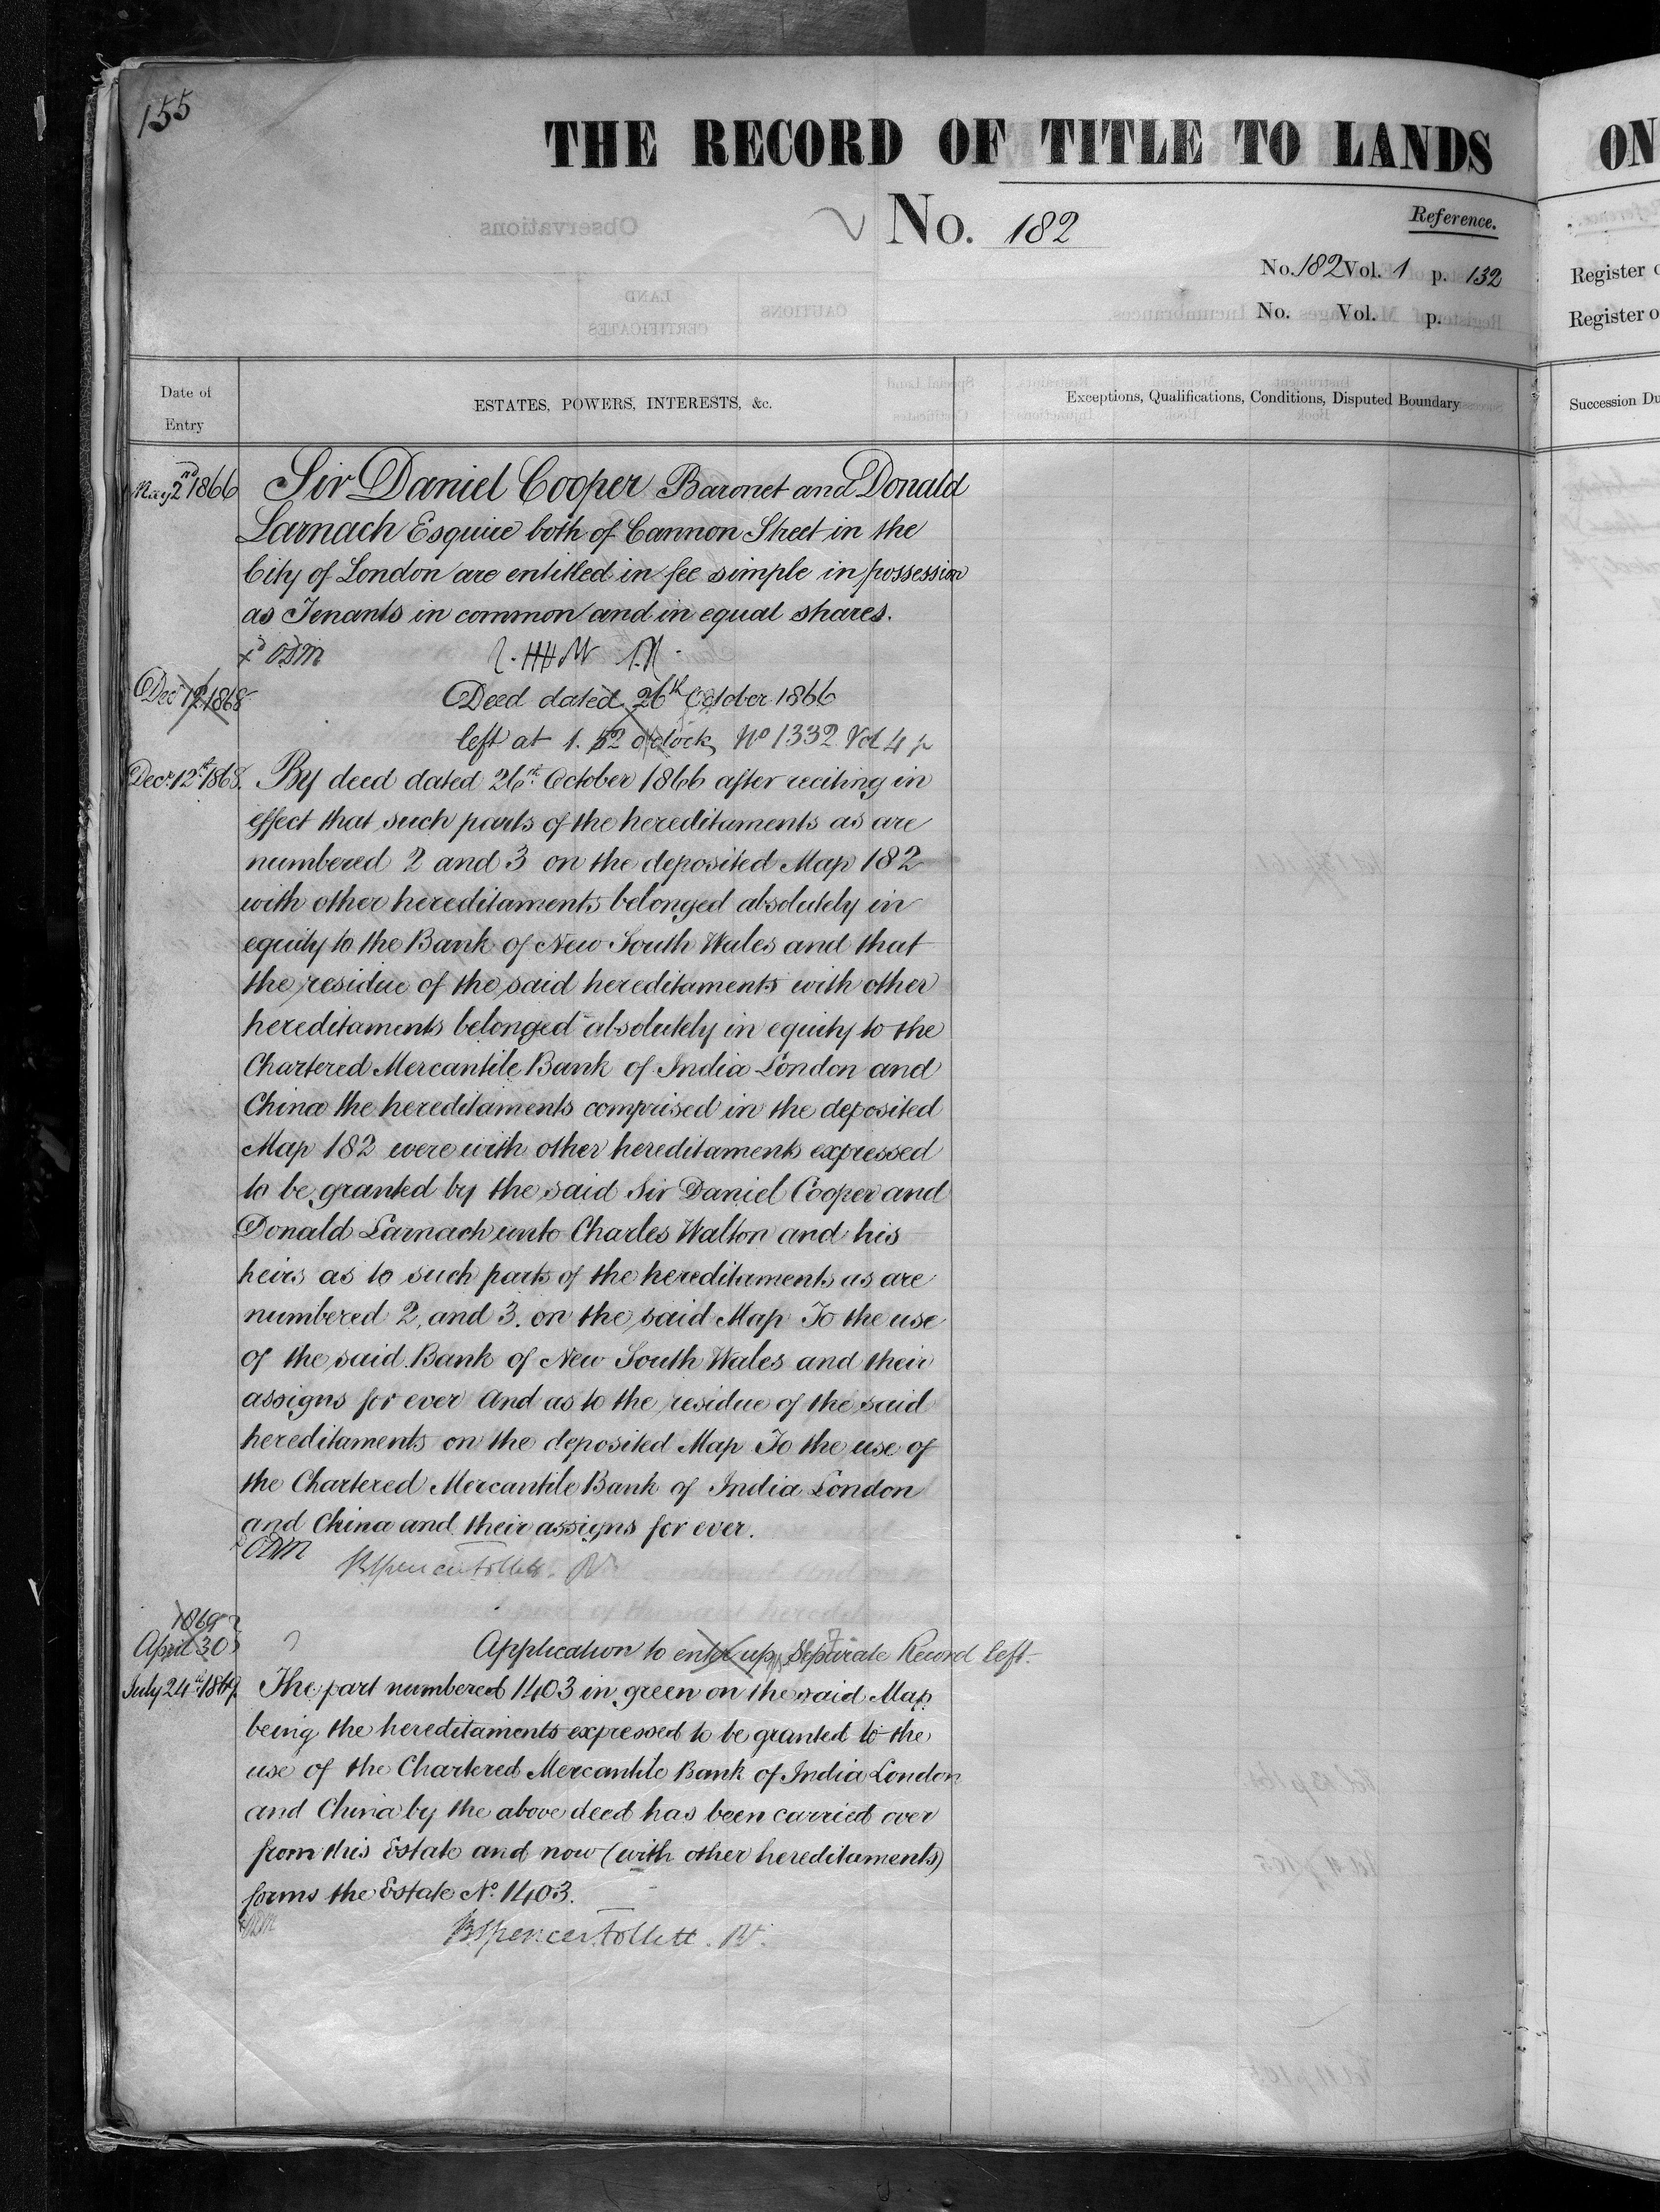 155
THE RECORD OF TITLE TO LANDS
No. 182
Reference.
No. 182 Vol. 1 p. 132
No. Vol. p.
Date of Entry
ESTATES, POWERS, INTERESTS, &c.
Exceptions, Qualifications, Conditions, Disputed Boundary
May 2nd 1866 Sir Daniel Cooper Baronet and Donald
Larnach Esquire both of Cannon Street in the
City of London are entitled in fee simple in possession
as Tenants in common and in equal shares.
Decr 12 1868 Deed dated 26th October 1866
left at 1.52 o'clock No 1332 Vol 4 p
Decr 12th 1868. By deed dated 26th October 1866 after reciting in
effect that such parts of the hereditaments as are
numbered 2 and 3 on the deposited Map 182
with other hereditaments belonged absolutely in
equity to the Bank of New South Wales and that
the residue of the said hereditaments with other
hereditaments belonged absolutely in equity to the
Chartered Mercantile Bank of India London and
China the hereditaments comprised in the deposited
Map 182 were with other hereditaments expressed
to be granted by the said Sir Daniel Cooper and
Donald Larnach unto Charles Walton and his
heirs as to such parts of the hereditaments as are
numbered 2, and 3. on the said Map To the use
of the said Bank of New South Wales and their
assigns for ever And as to the residue of the said
hereditaments on the deposited Map To the use of
the Chartered Mercantile Bank of India London
and China and their assigns for ever.
B Spencer Follett. R
1869
April 30 Application to enter up Separate Record left.
July 24th 1869. The part numbered 1403 in green on the said Map
being the hereditaments expressed to be granted to the
use of the Chartered Mercantile Bank of India London
and China by the above deed has been carried over
from this Estate and now (with other hereditaments)
forms the Estate No. 1403.
B Spencer Follett. R.
ON
Register
Register
Succession Du